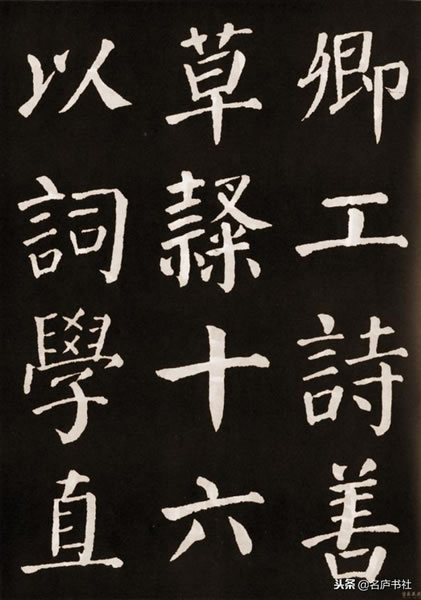 卿工詩善
草隸十六
以詞學直
头条 @名庐书社